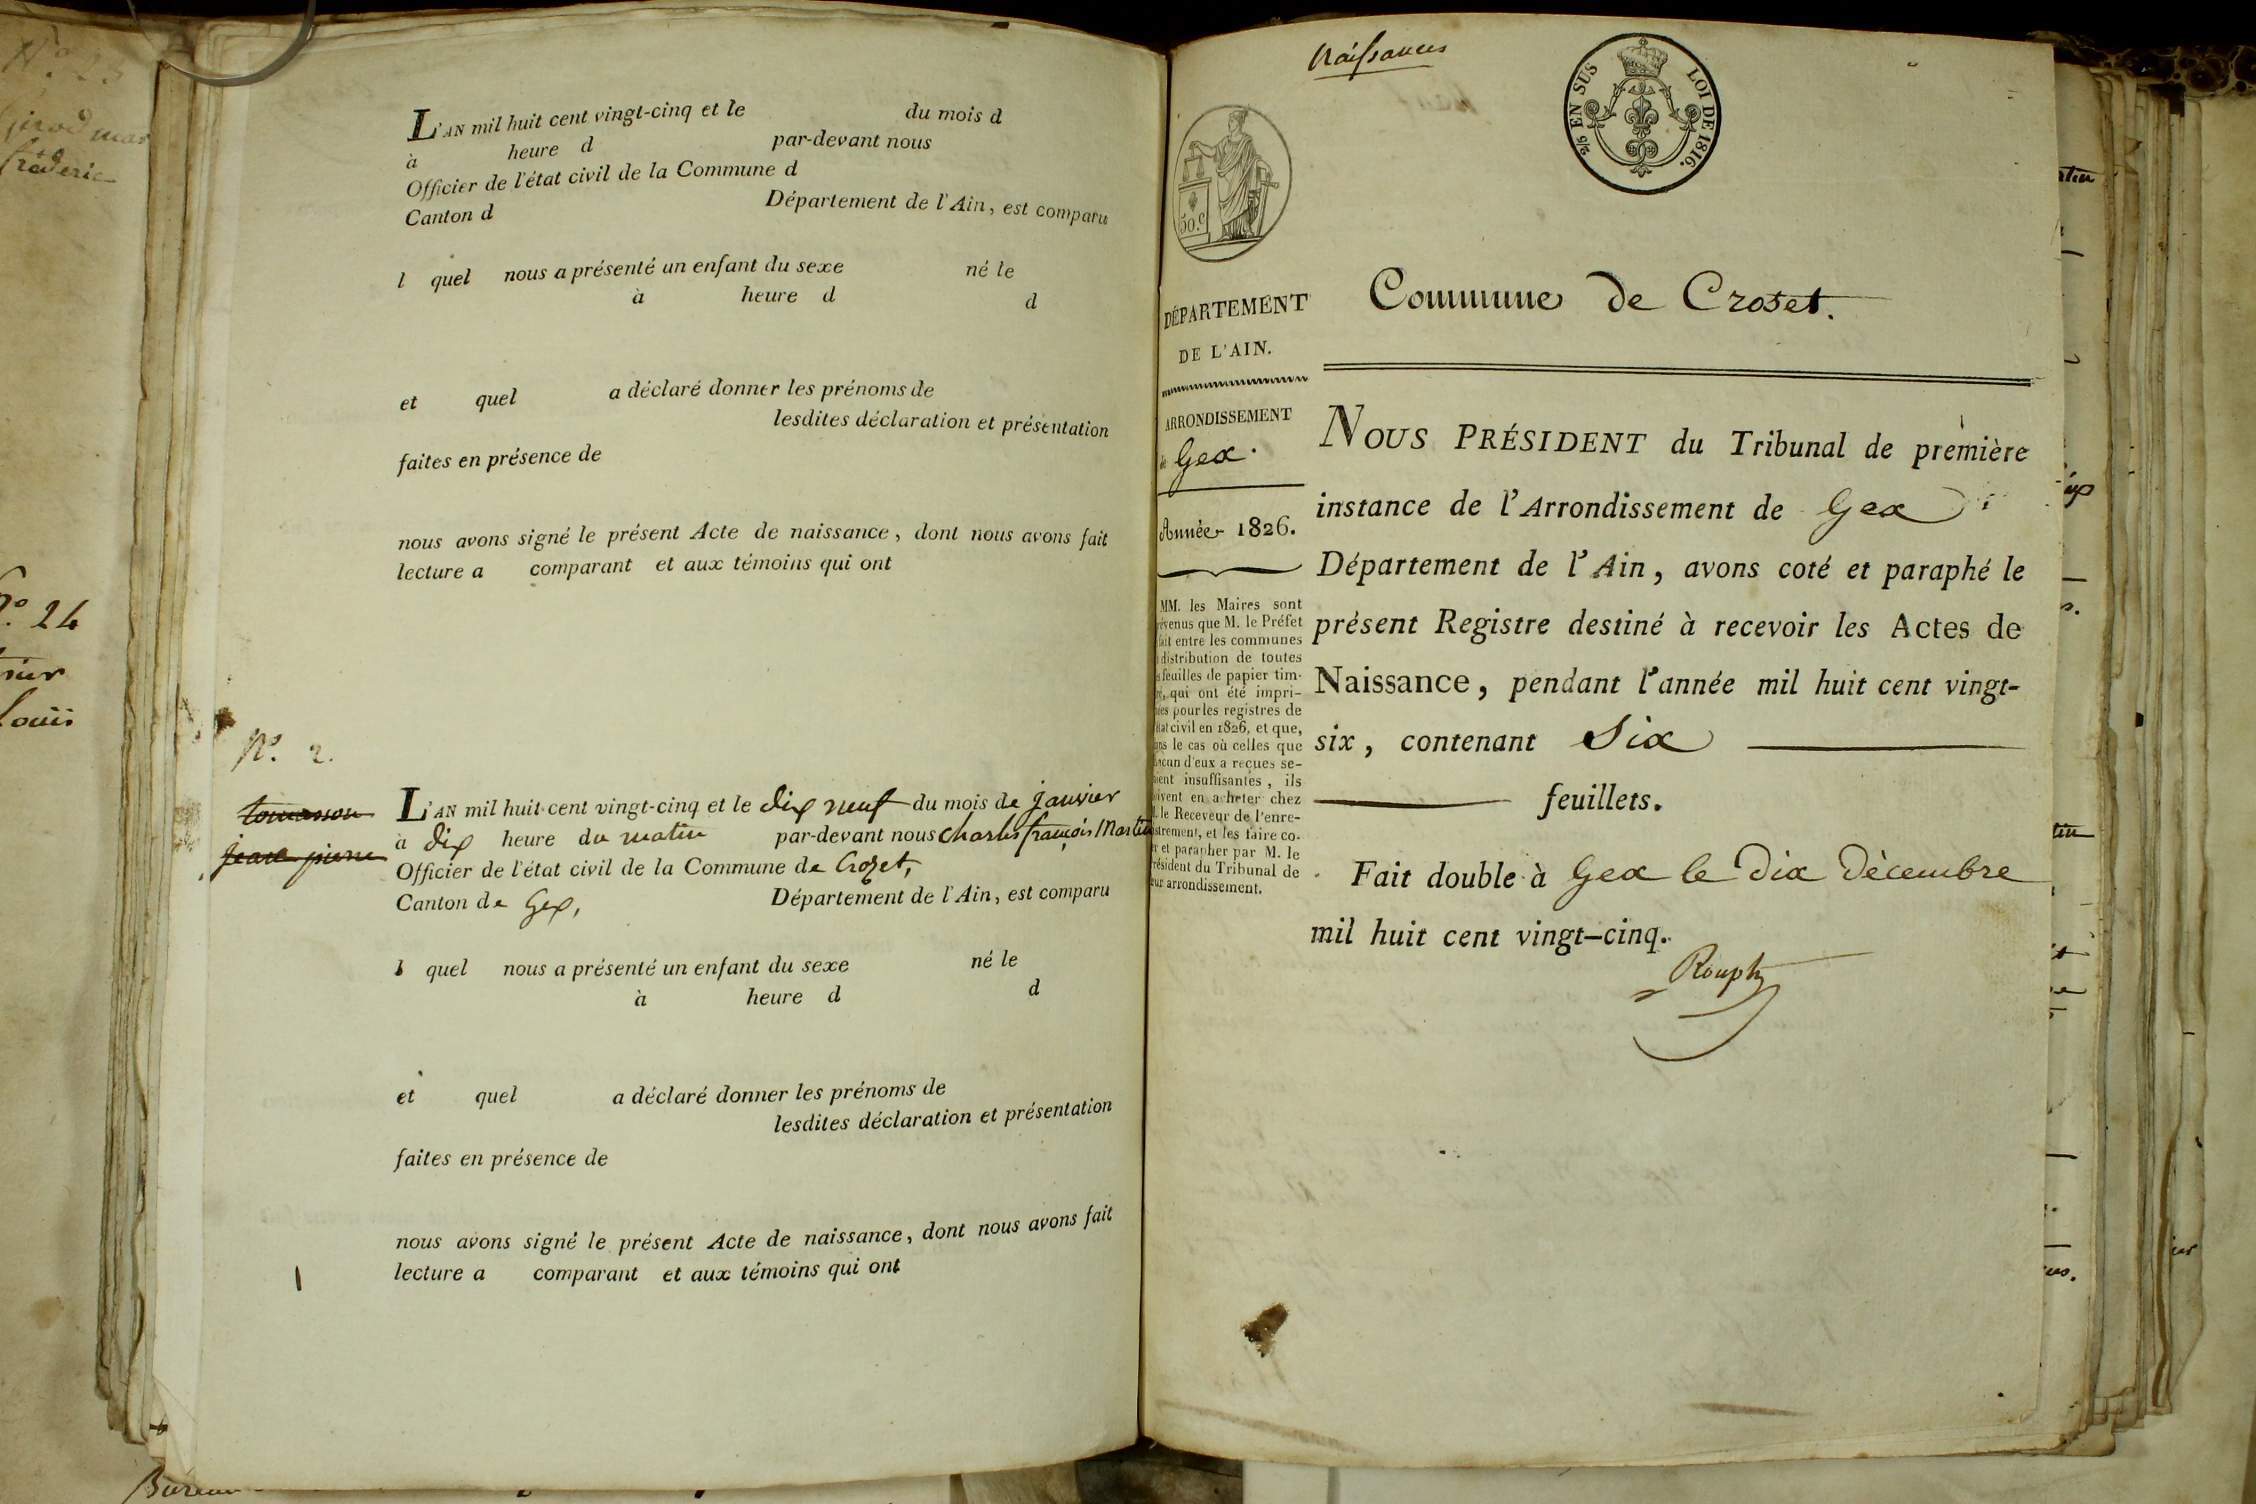 N.o 23
Girod mas
fréderic
N.o 24
Louis
L'AN mil huit cent vingt-cinq et le du mois d
à heure d par-devant nous
Officier de l'état civil de la Commune d
Canton d Département de l'Ain, est comparu
l quel nous a présenté un enfant du sexe né le
à heure d d
et quel a déclaré donner les prénoms de
lesdites déclaration et présentation
faites en présence de
nous avons signé le présent Acte de naissance, dont nous avons fait
lecture a comparant et aux témoins qui ont
N.o 2.
tomasson
jean pierre
L'AN mil huit cent vingt-cinq et le dix neuf du mois de janvier
à dix heure du matin par-devant nous charles françois Martin
Officier de l'état civil de la Commune de Crozet,
Canton de Gex, Département de l'Ain, est comparu
l quel nous a présenté un enfant du sexe né le
à heure d d
et quel a déclaré donner les prénoms de
lesdites déclaration et présentation
faites en présence de
nous avons signé le présent Acte de naissance, dont nous avons fait
lecture a comparant et aux témoins qui ont
Bureau
Naissances
2/6 EN SUS LOI DE 1816.
50.c
DÉPARTEMENT
DE L'AIN.
ARRONDISSEMENT
de Gex.
Année 1826.
MM. les Maires sont
prévenus que M. le Préfet
fait entre les communes
distribution de toutes
feuilles de papier tim-
qui ont été impri-
pour les registres de
état civil en 1826, et que,
dans le cas où celles que
chacun d'eux a reçues se-
raient insuffisantes, ils
doivent en acheter chez
M. le Receveur de l'enre-
gistrement, et les faire co-
ter et parapher par M. le
Président du Tribunal de
leur arrondissement.
Commune de Crozet.
NOUS PRÉSIDENT du Tribunal de première
instance de l'Arrondissement de Gex
Département de l'Ain, avons coté et paraphé le
présent Registre destiné à recevoir les Actes de
Naissance, pendant l'année mil huit cent vingt-
six, contenant Six
feuillets.
Fait double à Gex le dix Décembre
mil huit cent vingt-cinq.
Rouph